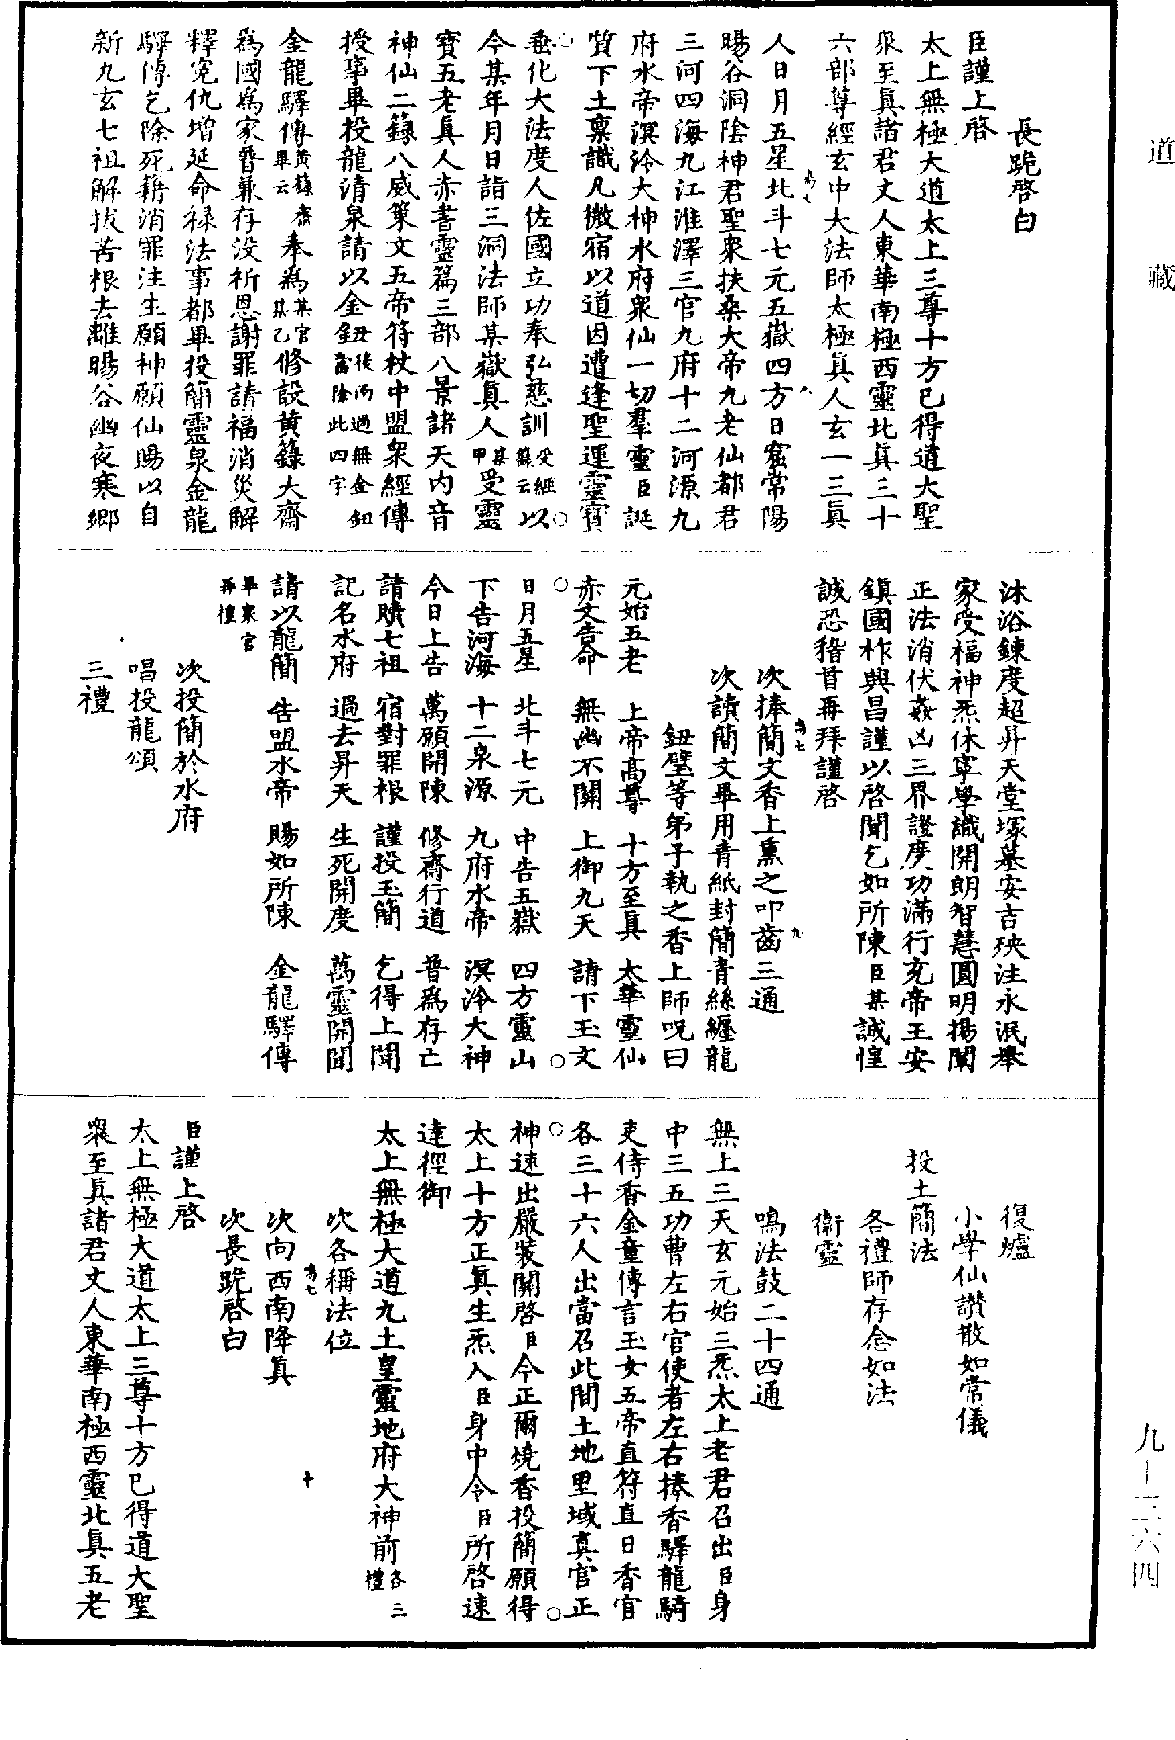 道藏
長跪啓白
臣謹上啓
太上無極大道太上三尊十方已得道大聖
衆至眞諸君丈人東華南極西靈北眞三十
六部尊經玄中大法師太極眞人玄一三眞
人日月五星北斗七元五嶽四方日窟常陽
暘谷洞陰神君聖衆扶桑大帝九老仙都君
三河四海九江淮澤三官九府十二河源九
府水帝溟泠大神水府衆仙一切羣靈臣誕
質下土稟識凡微宿以道因遭逢聖運靈寶
垂化大法度人佐國立功奉弘慈訓受經籙云以
今某年月日詣三洞法師某嶽眞人某甲受靈
寶五老眞人赤書靈篇三部八景諸天内音
神仙二籙八威策文五帝符杖中盟衆經傳
授事畢投龍清泉請以金鈕丑後酒過無金鈕當除此四字
金龍驛傳黃籙齋畢云奉爲某官某乙修設黄籙大齋
爲國爲家普兼存没祈恩謝罪請福消災解
釋寃仇增延命禄法事都畢投簡靈泉金龍
驛傳乞除死籍消罪注生願神願仙賜以自
新九玄七祖解拔苦根去離暘谷幽夜寒鄉
沐浴鍊度超昇天堂塚墓安吉殃注永泯舉
家受福神炁休寧學識開朗智慧圓明揚闡
正法消伏姦凶三界證度功滿行充帝王安
鎮國祚興昌謹以啓聞乞如所陳臣某誠惶
誠恐稽首再拜謹啓
次捧簡文香上熏之叩齒三通
次讀簡文畢用青紙封簡青絲纏龍
鈕壁等弟子執之香上師呪曰
元始五老 上帝高尊 十方至眞 太華靈仙
赤文告命 無幽不關 上御九天 請下玉文
日月五星 北斗七元 中告五嶽 四方靈山
下告河海 十二泉源 九府水帝 溟泠大神
今日上告 萬願開陳 修齋行道 普爲存亡
請贖七祖 宿對罪根 謹投玉簡 乞得上聞
記名水府 過去昇天 生死開度 萬靈開聞
請以龍簡 告盟水帝 賜如所陳 金龍驛傳
畢衆官再禮
次投簡於水府
唱投龍頌
三禮
復爐
小學仙讃散如常儀
投土簡法
各禮師存念如法
衛靈
鳴法鼓二十四通
無上三天玄元始三炁太上老君召出臣身
中三五功曹左右官使者左右捧香驛龍騎
吏侍香金童傳言玉女五帝直符直日香官
各三十六人出當召此間土地里域眞官正
神速出嚴裝關啓臣今正爾燒香投簡願得
太上十方正眞生炁入臣身中令臣所啓速
達徑御
太上無極大道九土皇靈地府大神前各三禮
次各稱法位
次向西南降眞
次長跪啓白
臣謹上啓
太上無極大道太上三尊十方已得道大聖
衆至眞諸君丈人東華南極西靈北眞五老
九—三六四